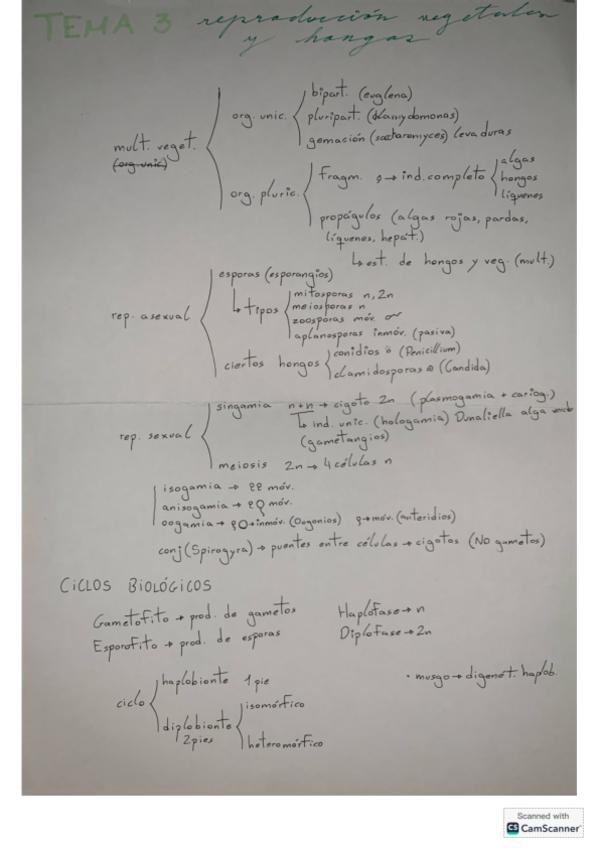 TEMA 3 reproducción vegetales
y hongas
mult. veget. (org. unic)
org. unic.
bipart. (euglena)
pluripart. (Clamydomonas)
gemación (saccharomyces) levaduras
org. pluric.
Fragm. → ind. completo
algas
hongos
líquenes
propágulos (algas rojas, pardas,
líquenes, hepát.)
↳ est. de hongos y veg. (mult.)
rep. asexual
esporas (esporangios)
↳ tipos
mitosporas n, 2n
meiosporas n
zoosporas móv.
aplanosporas inmóv. (pasiva)
ciertos hongos
conidios (Penicillium)
clamidosporas (Candida)
rep. sexual
singamia n+n → cigoto 2n (plasmogamia + cariog.)
↳ ind. unic. (hologamia) Dunaliella alga verde
(gametangios)
meiosis 2n → 4 células n
isogamia → móv.
anisogamia → móv.
oogamia → inmóv. (Oogonios) → móv. (anteridios)
conj (Spirogyra) → puentes entre células → cigotos (No gametos)
CICLOS BIOLÓGICOS
Gametofito → prod. de gametos Haplofase → n
Esporofito → prod. de esporas Diplofase → 2n
ciclo
haplobionte 1 pie
· musgo → digenét. haplob.
diplobionte
2 pies
isomórfico
heteromórfico
Scanned with
CS CamScanner